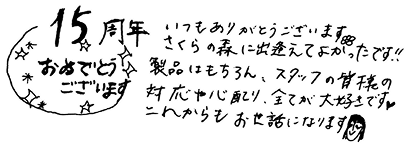 15周年
おめでとう
ございます
いつもありがとうございます
さくらの森に出逢えてよかったです!!
製品はもちろん、スタッフの皆様の
対応や心配り、全てが大好きです
これからもお世話になります